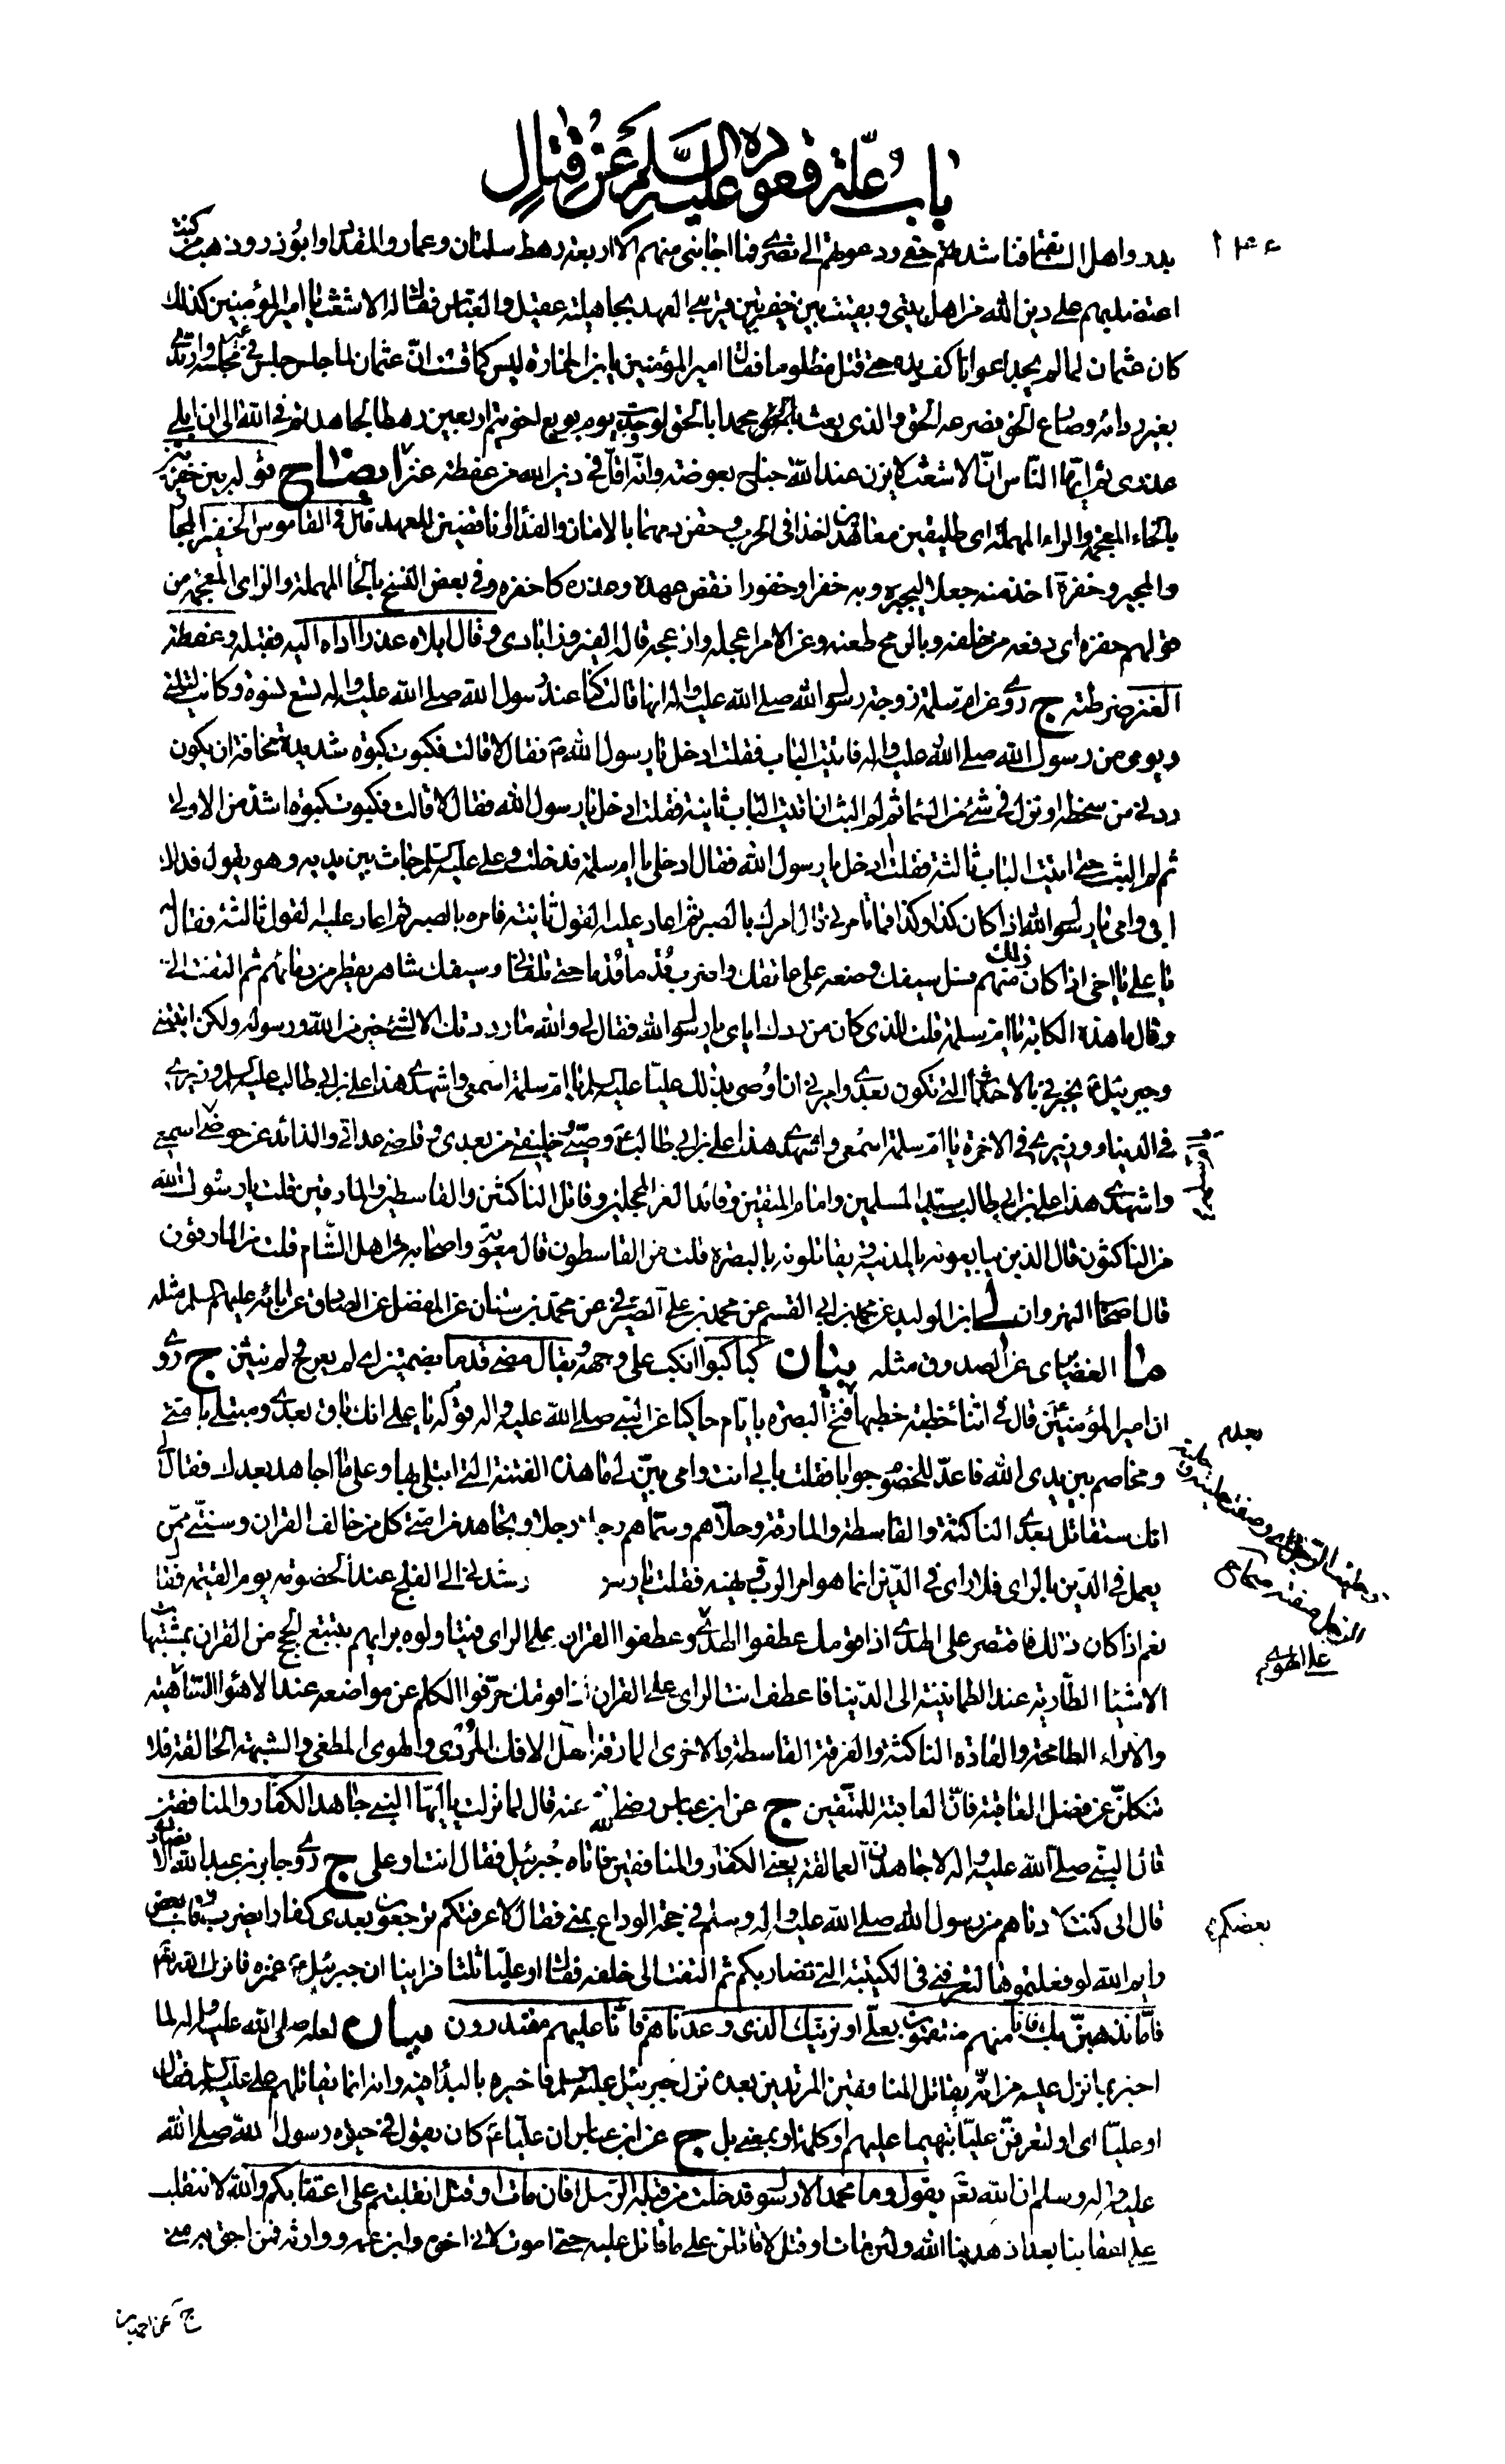 باب علة قعوده عليه السلم عن قتال
١٤٤
بدر واهل السابقة فناشدتهم حقي ودعوتهم الى نصرتي فما اجابني منهم الا اربعة رهط سلمان وعمار والمقداد وابوذر وذهب من كنت
اعتضد بهم على دين الله من اهل بيتي وبقيت بين خفيرتين قريبي العهد بجاهلية عقيل والعباس فقال له الاشعث يا امير المؤمنين كذلك
كان عثمان لما لم يجد اعوانا كف يده حتى قتل مظلوما فقال امير المؤمنين يا بن الخمارة ليس كما قست ان عثمان لما جلس جلس في غير مجلسه وارتدى
بغير ردائه وصارع الحق فصرعه الحق والذي بعث محمدا بالحق لو وجدت يوم بويع اخو تيم اربعين رهطا لجاهدتهم في الله الى ان ابلي
عذري ثم ايها الناس ان الاشعث لا يزن عند الله جناح بعوضة وانه اقل في دين الله من عفطة عنز ايضاح قوله بين خفيرتين
بالخاء المعجمة والراء المهملة اى طليقين معاهدين اخذا في الحرب وحقن دمهما بالامان والفداء او ناقضين للعهد قال في القاموس الخفير المجار
والمجير وخفره اخذ منه جعلا ليجيره وبه خفرا وخفورا نقض عهده وغدره كاخفره وفي بعض النسخ بالحاء المهملة والزاى المعجمة من
قولهم حفزه اى دفعه من خلفه وبالرمح طعنه وعن الامر اعجله وازعجه قاله الفيروزابادى وقال ابلاه عذرا اداه اليه فقبله وعفطة
العنز ضرطته ج روى عن ام سلمة زوجة رسول الله صلى الله عليه واله انها قالت كنا عند رسول الله صلى الله عليه واله تسع نسوة وكانت ليلتي
ويومي من رسول الله صلى الله عليه واله فاتيت الباب فقلت ادخل يا رسول الله ص فقال لا قالت فكبوت كبوة شديدة مخافة ان يكون
ردني من سخطه او نزل في شئ من السماء ثم لم البث ان اتيت الباب ثانية فقلت ادخل يا رسول الله فقال لا قالت فكبوت كبوة اشد من الاولى
ثم لم البث حتى اتيت الباب ثالثة فقلت ادخل يا رسول الله فقال ادخلي يا ام سلمة فدخلت وعلي عليه السلم جاث بين يديه وهو يقول فداك
ابي وامي يا رسول الله اذا كان كذا وكذا فما تامرني قال امرك بالصبر ثم اعاد عليه القول ثانية فامره بالصبر ثم اعاد عليه القول ثالثة فقال له
يا علي يا اخي اذا كان ذلك منهم فسل سيفك وضعه على عاتقك واضرب قدما قدما حتى تلقاني وسيفك شاهر يقطر من دمائهم ثم التفت الي
وقال ما هذه الكابة يا ام سلمة قلت للذي كان من ردك اياى يا رسول الله فقال لي والله ما رددتك الا لشئ خير من الله ورسوله ولكن اتيتني
وجبرئيل ع يخبرني بالاحداث التي تكون بعدى وامرني ان اوصي بذلك عليا عليه السلم يا ام سلمة اسمعي واشهدى هذا علي بن ابي طالب عليه السلم وزيري
في الدنيا ووزيري في الاخرة يا ام سلمة اسمعي واشهدى هذا علي بن ابي طالب ع وصيي وخليفتي من بعدي وقاضي عداتي والذائد عن حوضي اسمعي
واشهدى هذا علي بن ابي طالب سيد المسلمين وامام المتقين وقائد الغر المحجلين وقاتل الناكثين والقاسطين والمارقين قلت يا رسول الله
من الناكثون قال الذين يبايعونه بالمدينة ويقاتلونه بالبصرة قلت من القاسطون قال معوية واصحابه من اهل الشام قلت من المارقون
قال اصحاب النهروان لى ابن الوليد عن محمد بن ابي القسم عن محمد بن علي الصيرفي عن محمد بن سنان عن المفضل عن الصادق عن ابائه عليهم السلم مثله
ما الغضايرى عن الصدوق مثله بيان كبا كبوا انكب على وجهه ويقال مضى قدما بضمتين اى لم يعرج ولم ينثن ج روى
ان امير المؤمنين ع قال في اثناء خطبة خطبها بعد فتح البصرة بايام حاكيا عن النبي صلى الله عليه واله قوله يا علي انك باق بعدى ومبتلى بامتي
ومخاصم بين يدى الله فاعد للخصوم جوابا فقلت بابي انت وامي بين لي ما هذه الفتنة التي ابتلى بها وعلى ما اجاهد بعدك فقال لي
انك ستقاتل بعدى الناكثة والقاسطة والمارقة وحلاهم وسماهم رجلا رجلا وتجاهد من امتي كل من خالف القران وسنتي ممن
يعمل في الدين بالراى فلا راى في الدين انما هو امر الرب ونهيه فقلت يا رسول ارشدني الى الفلج عند الخصومة يوم القيمة فقال
نعم اذا كان ذلك فاقتصر على الهدى اذا قومك عطفوا الهدى وعطفوا القران على الراى فيتاولوه برايهم بتتبع الحجج من القران بمشتبهات
الاشياء الطارية عند الطمانينة الى الدنيا فاعطف انت الراى على القران اذا قومك حرفوا الكلم عن مواضعه عند الاهواء الساهية
والامراء الطامحة والقادة الناكثة والفرقة القاسطة والاخرى المارقة اهل الافك المردى والهوى المطغي والشبهة الخالفة فلا
تتكلن عن فضل العاقبة فان العاقبة للمتقين ج عن ابن عباس رضي الله عنه قال لما نزلت يا ايها النبي جاهد الكفار والمنافقين
قال النبي صلى الله عليه واله لاجاهدن العمالقة يعني الكفار والمنافقين فاتاه جبرئيل فقال انت او علي ج روى جابر بن عبد الله الانصارى
قال اني كنت لادناهم من رسول الله صلى الله عليه واله وسلم في حجة الوداع بمنى فقال لا عرفتكم ترجعون بعدى كفارا يضرب رقاب بعض
بعضكم
وايم الله لو فعلتموها لتعرفني في الكتيبة التي تضاربكم ثم التفت الى خلفه فقال او عليا ثلثا فراينا ان جبرئيل ع غمزه فانزل الله
فاما نذهبن بك فانا منهم منتقمون بعلي او نرينك الذي وعدناهم فانا عليهم مقتدرون بيان لعله صلى الله عليه واله لما
اخبر بما نزل عليه من انه يقاتل المنافقين المرتدين بعده نزل جبرئيل عليه السلم فاخبره بالبداهية وانه انما يقاتلهم علي عليه السلم فقال
او عليا اى او لتعرفن عليا بينهما عليهم او كلمة او بمعنى بل ج عن ابن عباس ان عليا ع كان يقول في حيوة رسول الله صلى الله
عليه واله وسلم ان الله تعم يقول وما محمد الا رسول قد خلت من قبله الرسل افان مات او قتل انقلبتم على اعقابكم والله لا ننقلب
على اعقابنا بعد اذ هدينا الله ولئن مات او قتل لاقاتلن على ما قاتل عليه حتى اموت لاني اخوه وابن عمه ووارثه فمن احق به مني
ج عن احمد بن